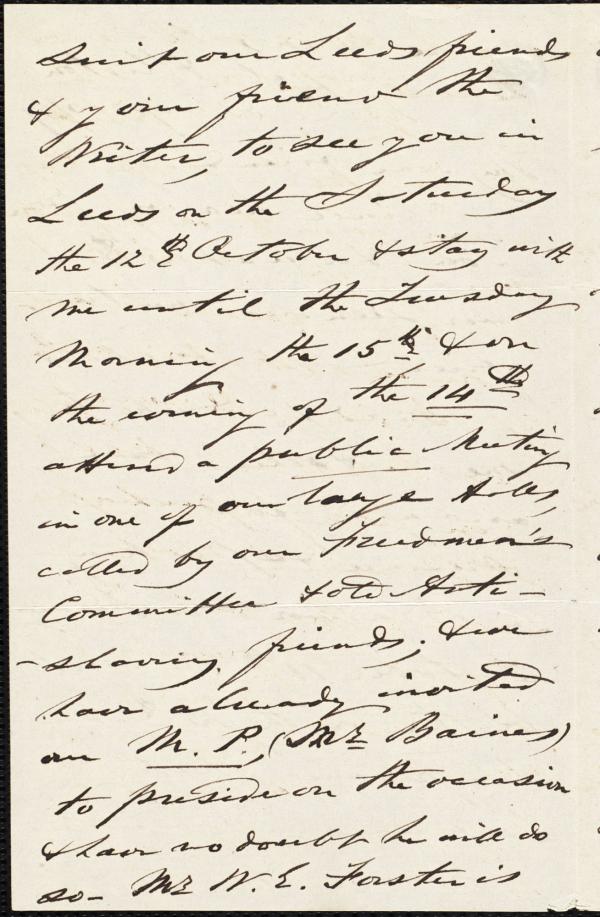 suit our Leeds friends
& your friend the
Writer, to see you in
Leeds on the Saturday
the 12th October & stay with
me until the Tuesday
Morning the 15th & on
the evening of the 14th
attend a public Meeting
in one of our large Halls,
called by our Freedmen's
Committee & old Anti-
-slavery friends; & we
have already invited
our M. P., (Mr Baines)
to preside on the occasion
& have no doubt he will do
so - Mr W. E. Forster is